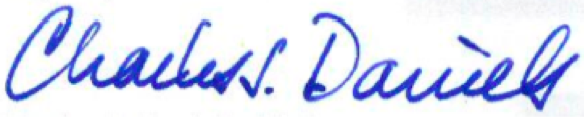 Charles W. Daniels